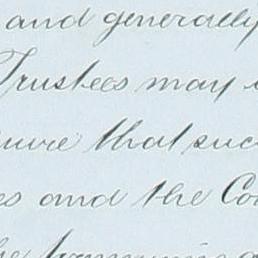 and generally
Trustees may
that suc
es and the Co